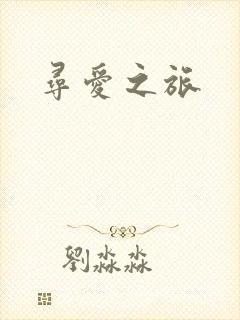 尋愛之旅
劉淼淼